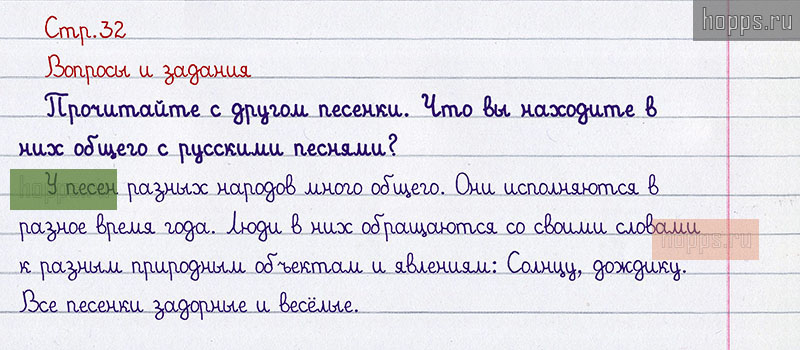 hopps.ru
Стр.32
Вопросы и задания
Прочитайте с другом песенки. Что вы находите в
них общего с русскими песнями?
У песен разных народов много общего. Они исполняются в
разное время года. Люди в них обращаются со своими словами
hopps.ru
к разным природным объектам и явлениям: Солнцу, дождику.
Все песенки задорные и весёлые.